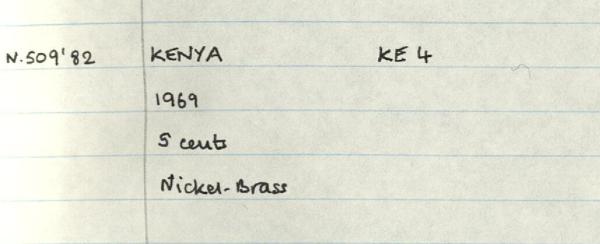 N.509'82 KENYA KE 4
1969
5 cents
Nickel-Brass